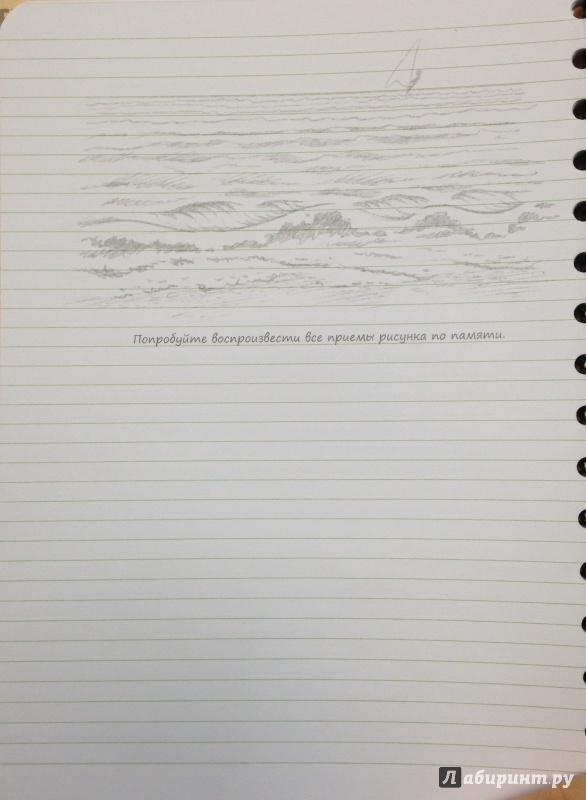 Попробуйте воспроизвести все приемы рисунка по памяти.
Лабиринт.ру